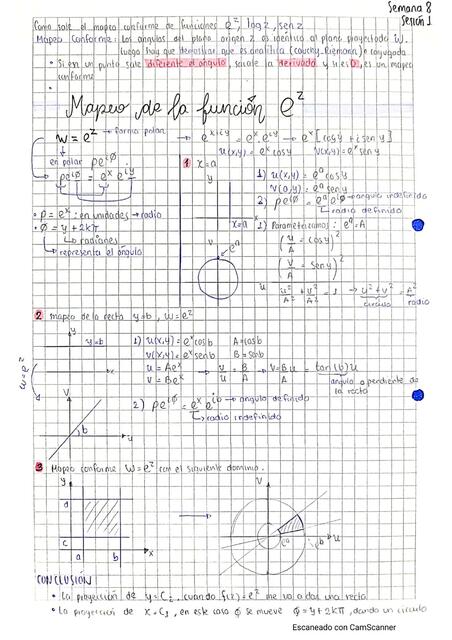 Semana 8
Sesión 1
Como sale el mapeo conforme de funciones e^z, log z, sen z
Mapeo Conforme: Los ángulos del plano origen z es idéntico al plano proyectado w.
luego hay que demostrar que es analítica (Cauchy-Riemann) o conjugada
• Si en un punto sale diferente el ángulo, sacate la derivada y si es 0, es un mapeo
conforme
Mapeo de la función e^z
w = e^z → forma polar → e^{x+iy} = e^x · e^{iy} → e^x [cos y + i sen y]
u(x,y) = e^x cos y v(x,y) = e^x sen y
en polar ρe^{iΦ}
ρe^{iΦ} = e^x e^{iy}
• ρ = e^x : en unidades → radio
• Φ = y + 2kπ
→ radianes
→ representa el ángulo
1 x = a
y
x = a
x
v
e^a
u
1) u(x,y) = e^a cos y
v(x,y) = e^a sen y
2) ρe^{iΦ} = e^a e^{iΦ} → ángulo indefinido
→ radio definido
3) Parametrizamos: e^a = A
(u/A = cos y)^2
(v/A = sen y)^2
u^2/A^2 + v^2/A^2 = 1 → u^2 + v^2 = A^2
círculo radio
2 mapeo de la recta y=b, w = e^z
y
y=b
x
w = e^z
1) u(x,y) = e^x cos b A = cos b
v(x,y) = e^x sen b B = sen b
u = Ae^x → v/u = B/A → v = B/A u = tan(b) u
v = Be^x
ángulo o pendiente de
la recta
2) ρe^{iΦ} = e^x e^{ib} → ángulo definido
→ radio indefinido
v
b
u
3 Mapeo conforme w = e^z con el siguiente dominio.
y
d
c
a b x
v
e^a e^b u
CONCLUSIÓN
• La proyección de y = C2, cuando f(z) = e^z me va a dar una recta
• La proyección de x = C1, en este caso Φ se mueve Φ = y + 2kπ, dando un círculo
Escaneado con CamScanner